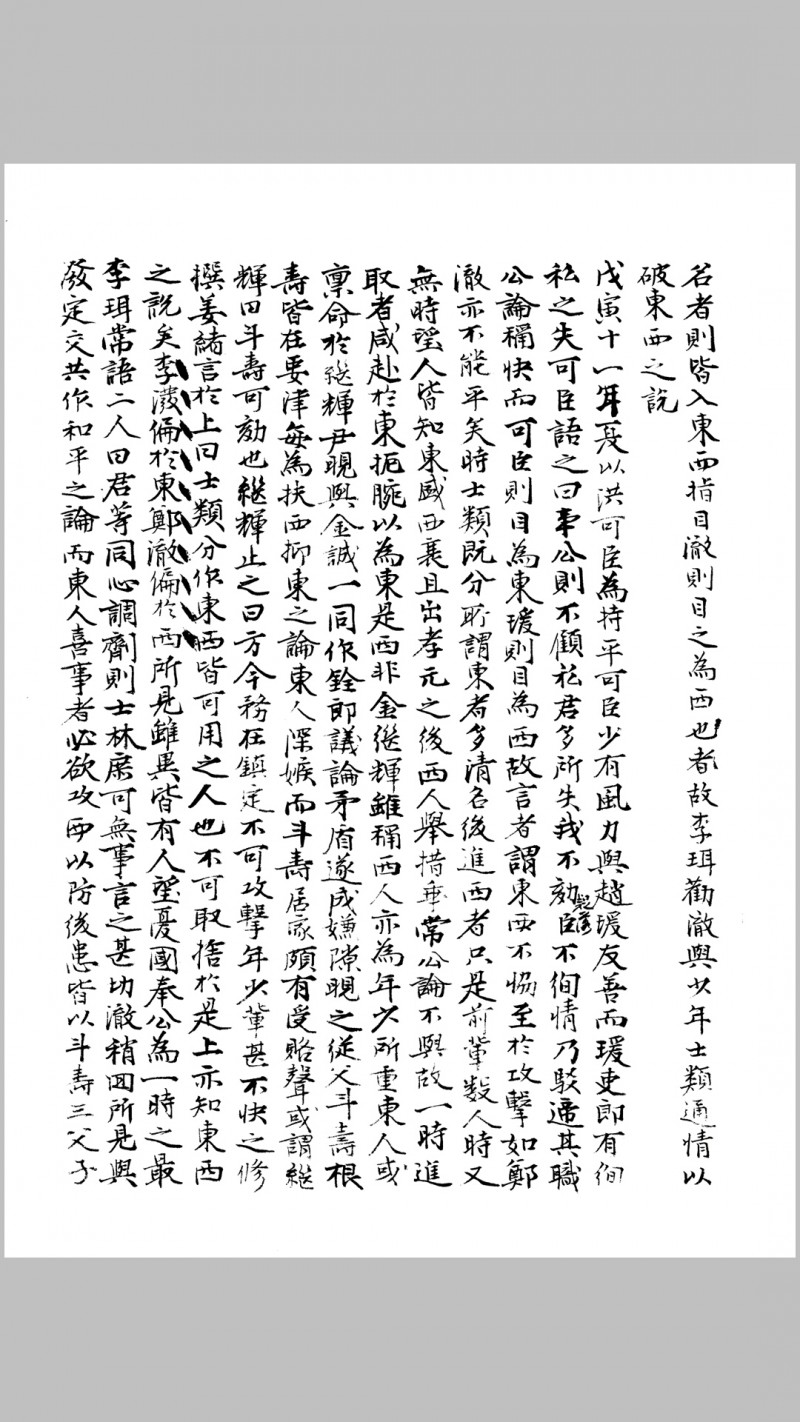 名者則皆入東西指目澈則目之為西也者故李珥勸澈與少年士類通情以
破東西之說
戊寅十一年夏以洪可臣為持平可臣少有風力與趙瑗友善而瑗吏郎有徇
私之失可臣語之曰事公則不顧私君多所失我不劾臣不徇情乃駁遞其職
公論稱快而可臣則目為東瑗則目為西故言者謂東西不協至於攻擊如鄭
澈亦不能平矣時士類既分所謂東者多清名後進西者只是前輩數人時又
無時望人皆知東盛西衰且出孝元之後西人舉措乖常公論不與故一時進
取者咸赴於東扼腕以為東是西非金繼輝雖稱西人亦為年少所重東人或
稟命於繼輝尹晛與金誠一同作銓郎議論矛盾遂成嫌隙晛之從父斗壽根
壽皆在要津每為扶西抑東之論東人深嫉而斗壽居家頗有受賂聲或謂繼
輝曰斗壽可劾也繼輝止之曰方今務在鎮定不可攻擊年少輩甚不快之修
撰姜緒言於上曰士類分作東西皆可用之人也不可取捨於是上亦知東西
之說矣李潑偏於東鄭澈偏於西所見雖異皆有人望憂國奉公為一時之最
李珥常語二人曰君等同心調劑則士林庶可無事言之甚切澈稍回所見與
潑定交共作和平之論而東人喜事者必欲攻西以防後患皆以斗壽三父子